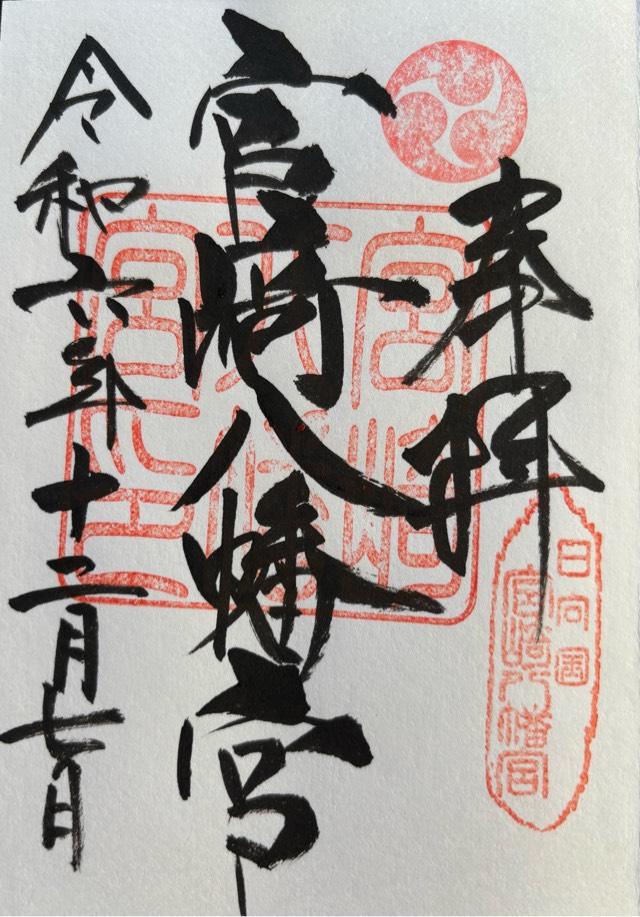 奉拝
宮崎八幡宮
令和六年十二月七日
宮崎
八幡
宮之印
日向国
宮崎八幡宮